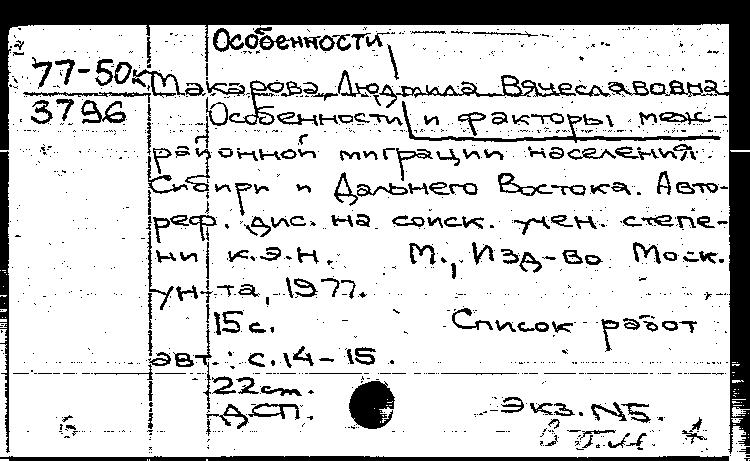 Особенности
77-50к Макарова, Людмила Вячеславовна
3796 Особенности и факторы меж-
районной миграции населения
Сибири и Дальнего Востока. Авто-
реф. дис. на соиск. учен. степе-
ни к.э.н. М., Изд-во Моск.
ун-та, 1977.
15с. Список работ
авт.: с.14-15.
22см.
ДСП. Экз. №5.
Б